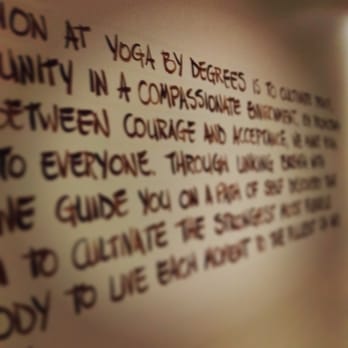 ION AT YOGA BY DEGREES IS TO CULTIVATE
UNITY IN A COMPASSIONATE ENVIRONMENT,
BETWEEN COURAGE AND ACCEPTANCE, WE
TO EVERYONE. THROUGH LINKING BREATH WITH
WE GUIDE YOU ON A PATH OF SELF DISCOVERY THAT
TO CULTIVATE THE STRONGEST MOST
ODY TO LIVE EACH MOMENT TO THE FULLEST